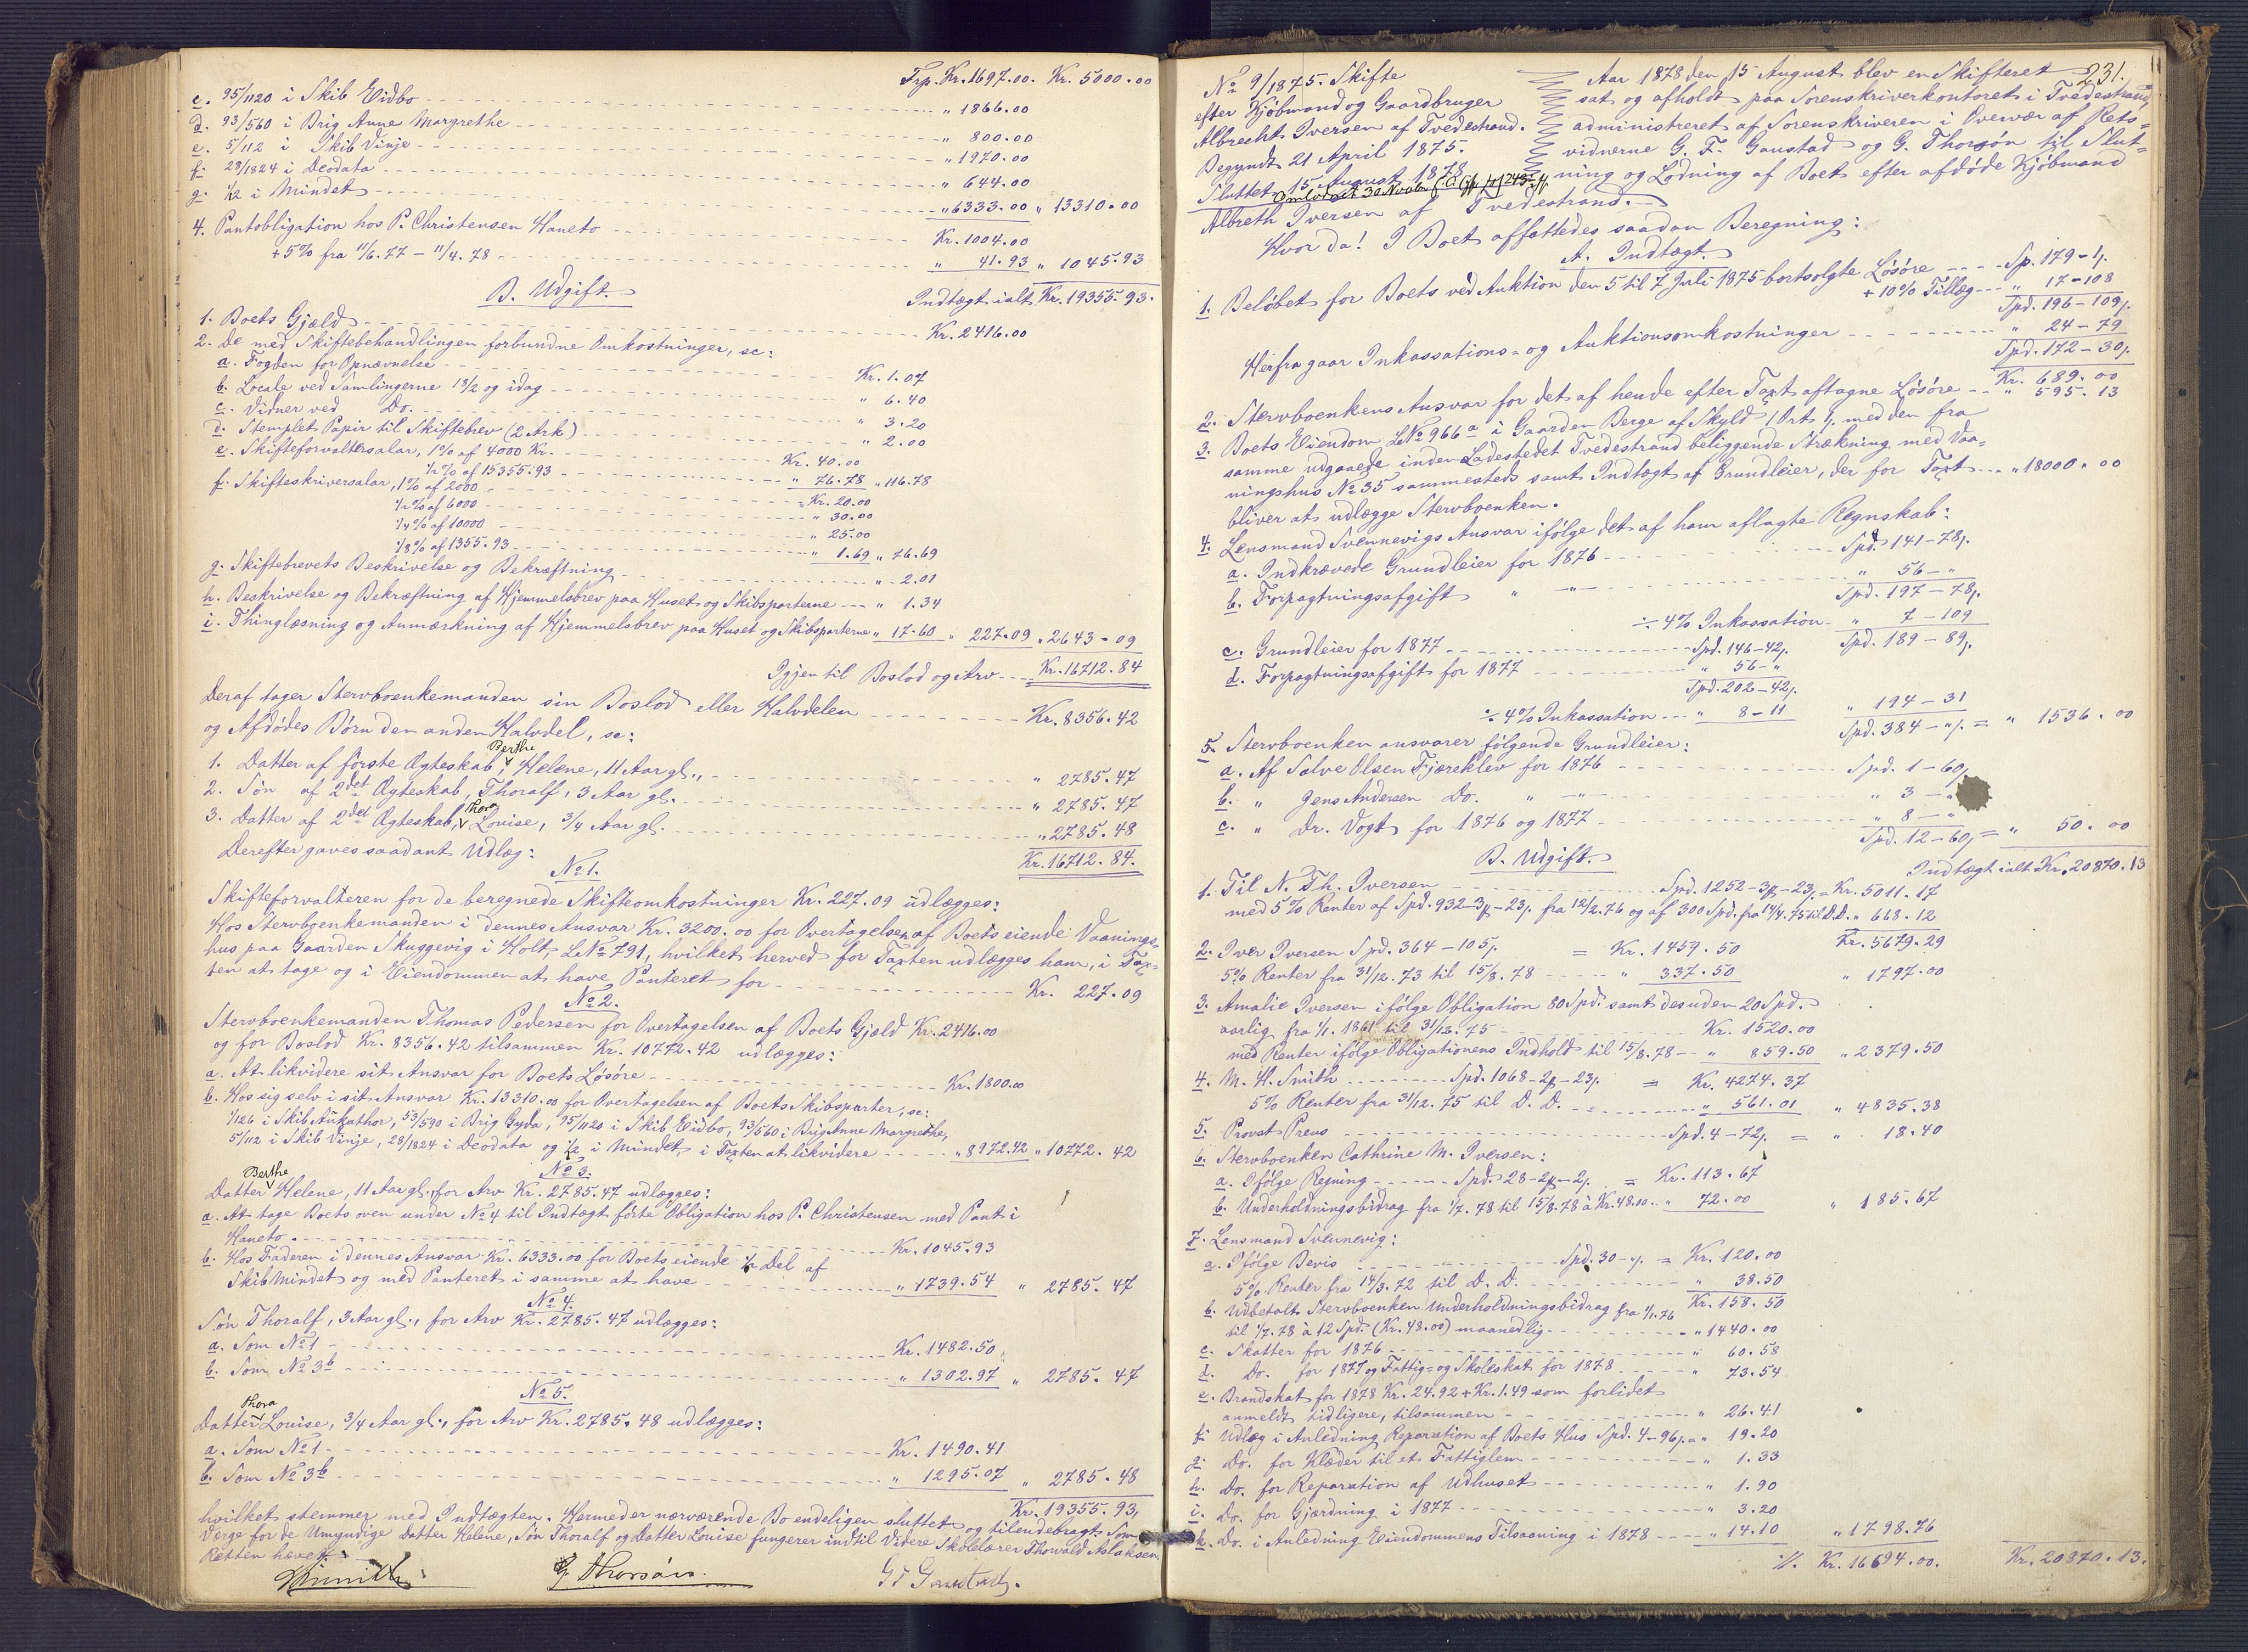 Trp. Kr. 1697.00. Kr. 5000.00
c. 95/1120 i Skib Eidbo " 1866.00
d. 93/560 i Brig Anne Margrethe " 800.00
e. 5/112 i Skib Vinje " 1970.00
f. 28/1824 i Deodata " 644.00
g. 1/2 i Mindet " 6333.00 " 13310.00
4. Pantobligation hos P. Christensen Haneto Kr. 1004.00
+ 5% fra 11/6.77 - 11/4.78 " 41.93 " 1045.93
Indtægt ialt Kr. 19355.93.
B. Udgift.
1. Boets Gjæld Kr. 2416.00
2. De med Skiftebehandlingen forbundne Omkostninger, sc:
a. Fogden for Opnævnelse Kr. 1.07
b. Locale ved Samlingerne 18/2 og idag " 6.40
c. Vidner ved Do. " 3.20
d. Stemplet Papir til Skiftebrev (2 Ark) " 2.00
e. Skifteforvaltersalar, 1% af 4000 Kr. Kr. 40.00
1/2% af 15355.93 " 76.78 " 116.78
f. Skifteskriversalar, 1% af 2000 Kr. 20.00
1/2% af 6000 " 30.00
1/4% af 10000 " 25.00
1/8% af 1355.93 " 1.69 " 76.69
g. Skiftebrevets Beskrivelse og Bekræftning " 2.01
h. Beskrivelse og Bekræftning af Hjemmelsbrev paa Huset og Skibsparterne " 1.34
i. Thinglæsning og Anmærkning af Hjemmelsbrev paa Huset og Skibsparterne " 17.60 " 227.09 " 2643.09
Igjen til Boslod og Arv Kr. 16712.84
Deraf tager Stervboenkemanden sin Boslod eller Halvdelen Kr. 8356.42
og Afdødes Børn den anden Halvdel, sc:
1. Datter af første Ægteskab, Berthe Helene, 11 Aar gl., " 2785.47
2. Søn af 2det Ægteskab, Thoralf, 3 Aar gl. " 2785.47
3. Datter af 2det Ægteskab, Thora Louise, 3/4 Aar gl. " 2785.48
Kr. 16712.84.
Derefter gaves saadant Udlæg:
No 1.
Skifteforvalteren for de beregnede Skifteomkostninger Kr. 227.09 udlægges:
Hos Stervboenkemanden i dennes Ansvar Kr. 3200.00 for Overtagelsen af Boets eiende Vaanings-
hus paa Gaarden Skuggevig i Holt, LNo 791, hvilket herved for Taxten udlægges ham, i Tax-
ten at tage og i Eiendommen at have Panteret for Kr. 227.09
No 2.
Stervboenkemanden Thomas Pedersen for Overtagelsen af Boets Gjæld Kr. 2416.00
og for Boslod Kr. 8356.42 tilsammen Kr. 10772.42 udlægges:
a. At likvidere sit Ansvar for Boets Løsøre Kr. 1800.00
b. Hos sig selv i sit Ansvar Kr. 13310.00 for Overtagelsen af Boets Skibsparter, sc:
1/126 i Skib Aukathor, 53/590 i Brig Gyda, 95/1120 i Skib Eidbo, 93/560 i Brig Anne Margrethe,
5/112 i Skib Vinje, 28/1824 i Deodata og 1/2 i Mindet, i Taxten at likvidere " 8972.42 " 10772.42
No 3.
Datter Berthe Helene, 11 Aar gl., for Arv Kr. 2785.47 udlægges:
a. At tage Boets oven under No 4 til Indtægt førte Obligation hos P. Christensen med Pant i
Haneto Kr. 1045.93
b. Hos Faderen i dennes Ansvar Kr. 6333.00 for Boets eiende 1/2 Del af
Skib Mindet og med Panteret i samme at have " 1739.54 " 2785.47
No 4.
Søn Thoralf, 3 Aar gl., for Arv Kr. 2785.47 udlægges:
a. Som No 1 Kr. 1482.50
b. Som No 3b " 1302.97 " 2785.47
No 5.
Datter Thora Louise, 3/4 Aar gl., for Arv Kr. 2785.48 udlægges:
a. Som No 1 Kr. 1490.41
b. Som No 3b " 1295.07 " 2785.48
Kr. 19355.93,
hvilket stemmer med Indtægten. Hermed er nærværende Bo endeligen sluttet og tilendebragt. Som
Verge for de Umyndige Datter Helene, Søn Thoralf og Datter Louise fungerer indtil Videre Skolelærer Thorvald Aslaksen.
Retten hævet.
G. Thorsøn. G F Gaustad.
231.
No 9/1875. Skifte
efter Kjøbmand og Gaardbruger
Albrecht Iversen af Tvedestrand.
Begyndt 21 April 1875.
Sluttet 15 August 1878
Aar 1878 den 15 August blev en Skifteret
sat og afholdt paa Sorenskriverkontoret i Tvedestrand,
administreret af Sorenskriveren i Overvær af Rets-
vidnerne G. F. Gaustad og G. Thorsøn til Slut-
ning og Lodning af Boet efter afdøde Kjøbmand
Albreth Iversen af Tvedestrand.
Hvor da! I Boet affattedes saadan Beregning:
A. Indtægt.
1. Beløbet for Boets ved Auktion den 5 til 7 Juli 1875 bortsolgte Løsøre Sp. 179-1/.
+ 10% Tillæg " 17-108
Spd. 196-109/.
Herfra gaar Inkassations- og Auktionsomkostninger " 24-79
Spd. 172-30/.
Kr. 689.00
2. Stervboenkens Ansvar for det af hende efter Taxt aftagne Løsøre " 595.13
3. Boets Eiendom LNo 966a i Gaarden Berge af Skyld 1 Ort 1/. med den fra
samme udgaaede inden Ladestedet Tvedestrand beliggende Strækning med Vaa-
ningshus No 35 sammesteds samt Indtægt af Grundleier, der for Taxt " 18000.00
bliver at udlægge Stervboenken.
4. Lensmand Svennevigs Ansvar ifølge det af ham aflagte Regnskab:
a. Indkrævede Grundleier for 1876 Spd. 141-78/.
b. Forpagtningsafgift " " " 56-"
Spd. 197-78/.
÷ 4% Inkassation " 7-109
Spd. 189-89/.
c. Grundleier for 1877 Spd. 146-42/.
d. Forpagtningsafgift for 1877 " 56-"
Spd. 202-42/.
÷ 4% Inkassation " 8-11 " 194-31
Spd. 384-"/. = " 1536.00
5. Stervboenken ansvarer følgende Grundleier:
a. Af Salve Olsen Fjæreklev for 1876 Spd. 1-60/.
b. " Jens Andersen Do. " " " 3-"
c. " Dr. Vogt for 1876 og 1877 " 8-"
Spd. 12-60/. = " 50.00
Indtægt ialt Kr. 20870.13
B. Udgift.
1. Til N. Th. Iversen Spd. 1252-3#-23/. = Kr. 5011.17
med 5% Renter af Spd. 932-3#-23/. fra 12/2.76 og af 300 Spd. fra 14/4.75 til D.D. " 668.12
Kr. 5679.29
2. Iver Iversen Spd. 364-105/. = Kr. 1459.50
5% Renter fra 31/12.73 til 15/8.78 " 337.50 " 1797.00
3. Amalie Iversen ifølge Obligation 80 Spd. samt desuden 20 Spd.
aarlig fra 1/1.1861 til 31/12.75 Kr. 1520.00
med Renter ifølge Obligationens Indhold til 15/8.78 " 859.50 " 2379.50
4. M. H. Smith Spd. 1068-2#-23/. = Kr. 4274.37
5% Renter fra 31/12.75 til D. D. " 561.01 " 4835.38
5. Provst Preus Spd. 4-72/. = " 18.40
6. Stervboenken Cathrine M. Iversen:
a. Ifølge Regning Spd. 28-2#-2/. = Kr. 113.67
b. Underholdningsbidrag fra 1/7.78 til 15/8.78 à Kr. 48.00 " 72.00 " 185.67
7. Lensmand Svennevig:
a. Ifølge Bevis Spd. 30-"/. = Kr. 120.00
5% Renter fra 14/3.72 til D. D. " 38.50
Kr. 158.50
b. Udbetalt Stervboenken Underholdningsbidrag fra 1/1.76
til 1/7.78 à 12 Spd. (Kr. 48.00) maanedlig " 1440.00
c. Skatter for 1876 " 60.58
d. Do. for 1877 og Fattig- og Skoleskat for 1878 " 73.54
e. Brandskat for 1878 Kr. 24.92 + Kr. 1.49 som forlidet
anmeldt tidligere, tilsammen " 26.41
f. Udlæg i Anledning Reparation af Boets Hus Spd. 4-96/. = " 19.20
g. Do. for Klæder til et Fattiglem " 1.33
h. Do. for Reparation af Udhuset " 1.90
i. Do. for Gjærdning i 1877 " 3.20
k. Do. i Anledning Eiendommens Tilsaaning i 1878 " 14.10 " 1798.76
./. Kr. 16694.00. Kr. 20870.13.